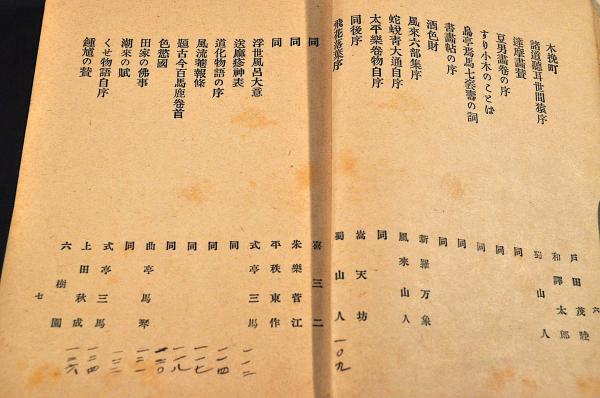 六
木挽町 戸田茂睡
諸道聽耳世間猿序 和譯太郎
達磨畫賛 蜀山人
豆男畫卷の序 同
すり小木のことば 同
烏亭焉馬七套壽の詞 同
書畫帖の序 同
酒色財 同
風來六部集序 新羅万象
蛇蛻青大通自序 風來山人
太平樂卷物自序 同
同後序 嵩天坊
飛花落葉序 蜀山人 一〇九
同 喜三二
同 朱樂菅江
同 平秩東作
浮世風呂大意 式亭三馬
送麻疹神表 同 一一二
道化物語の序 同 一一四
風流報條 同 一一七
題古今百馬鹿卷首 同 一一八
色慾國 曲亭馬琴 一二〇
田家の佛事 同 一二一
潮來の賦 式亭三馬 一二二
くせ物語自序 上田秋成 一二四
鍾馗の賛 六樹園 一二六
七